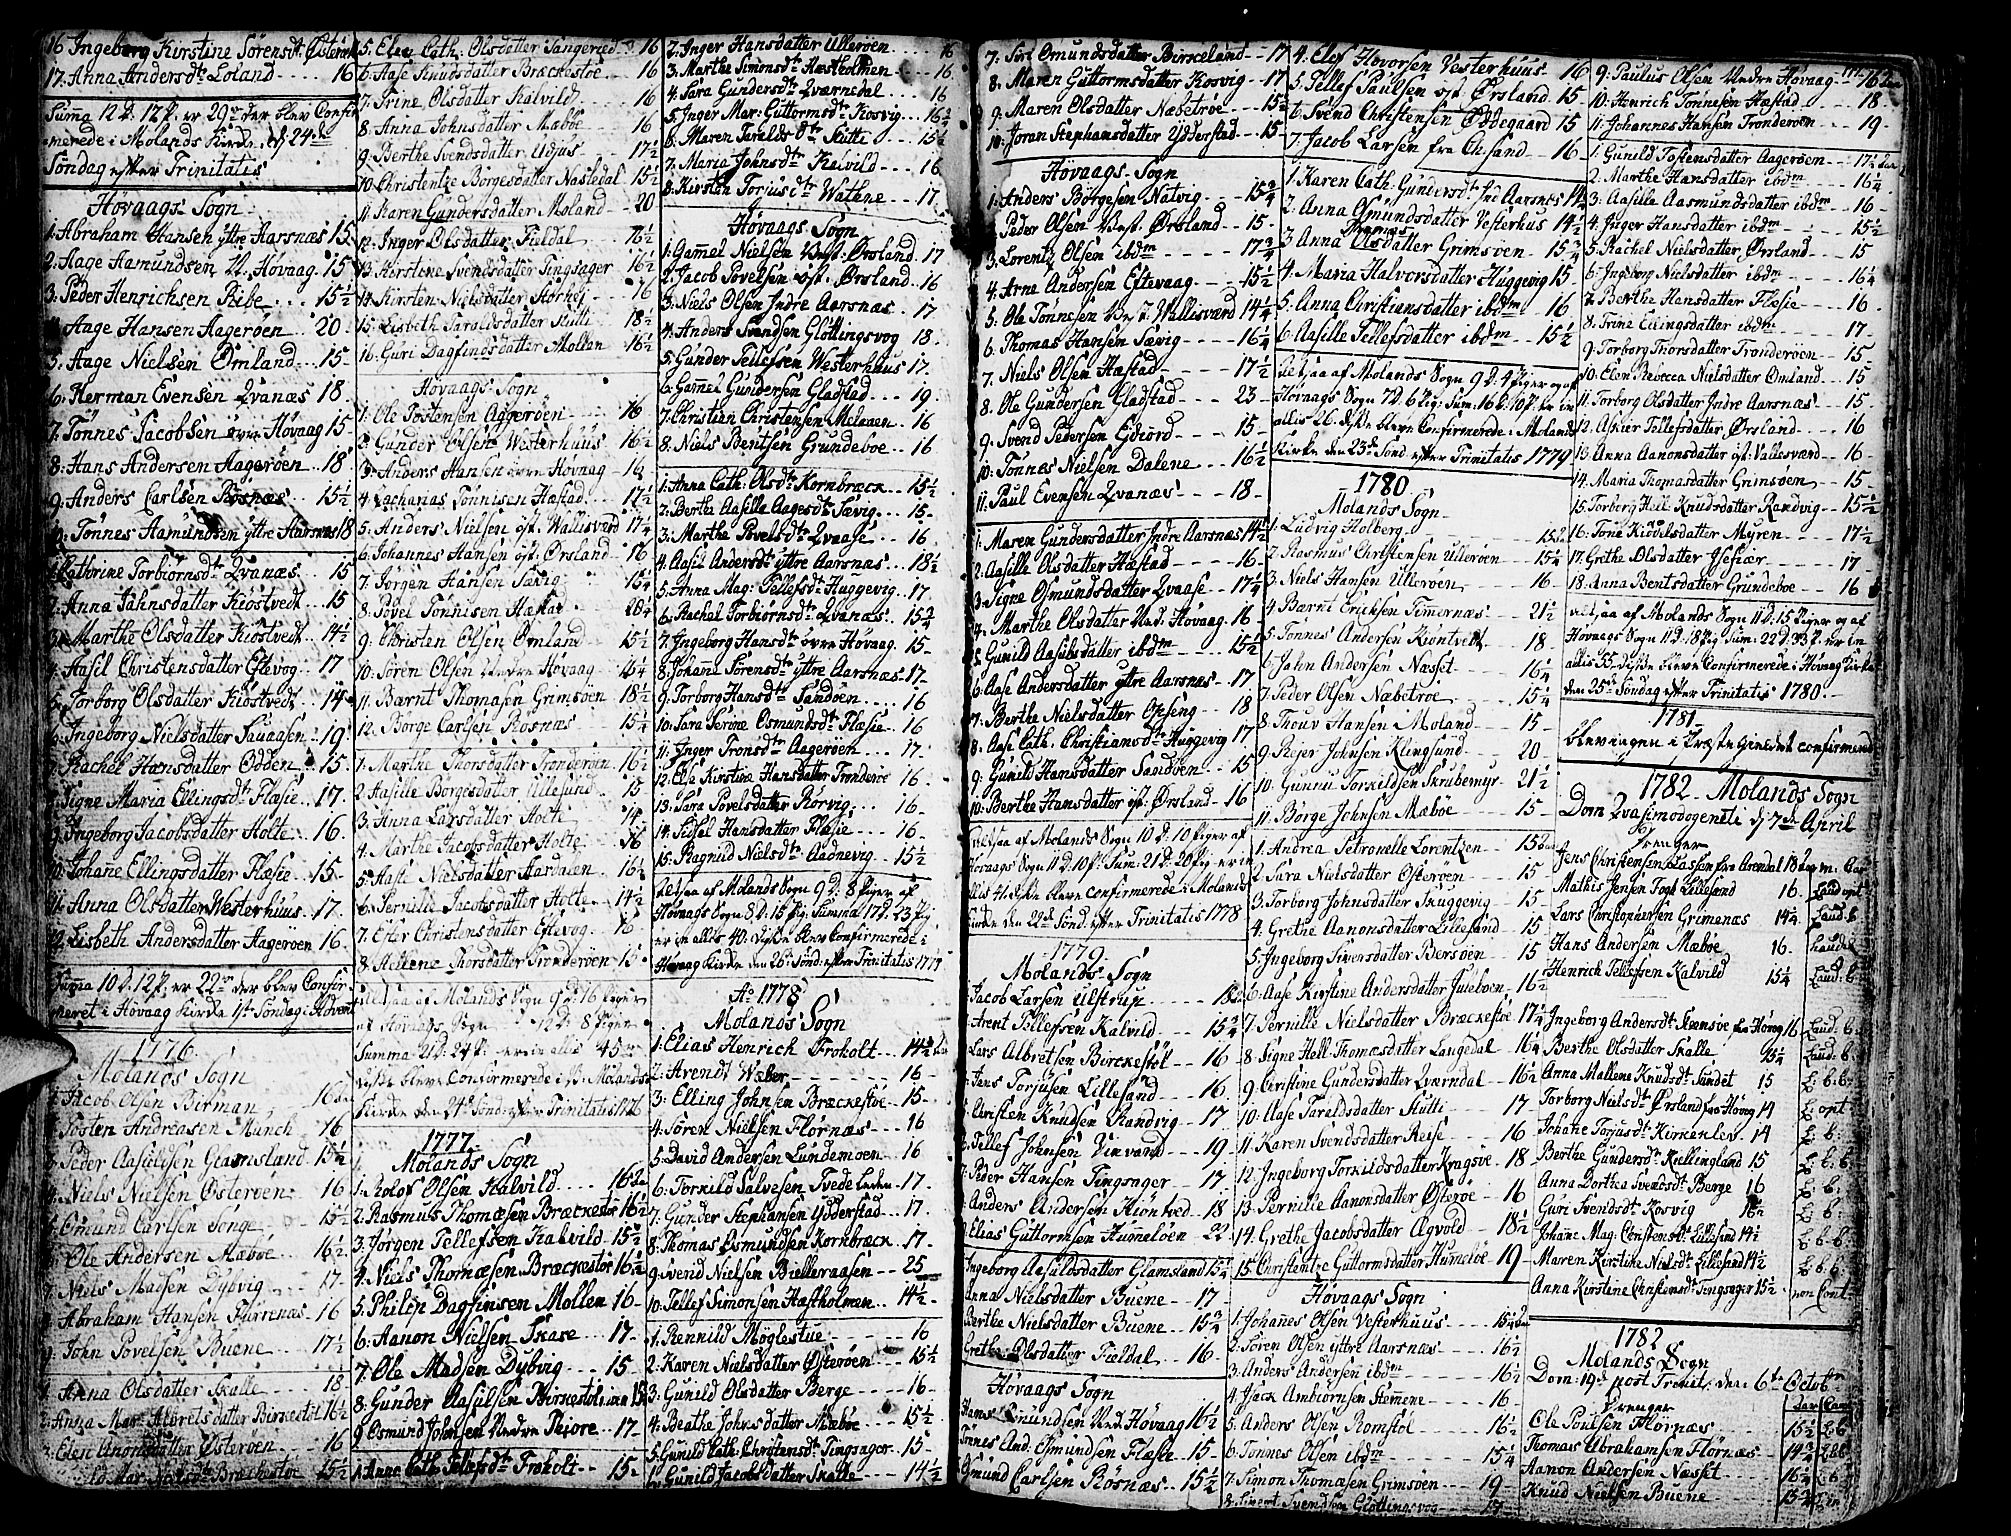 16 Ingeborg Kirstine Sörensdt.
17. Anna Andersdt. Loland - - - 16
Suma 12 d. 17 p. er 29 der blev Confir
merede i Molands Kirke d. 24de
Söndag efter Trinitatis
Høvaags Sogn
1. Abraham Hansen yttre Aarsnæs 15
2. Aage Aamundsen N. Høvaag. 15
3. Peder Henrichsen Ribe . . . 15½
4. Aage Hansen Aagerøen . . 20.
5. Aage Nielsen Ømland - - 15
6. Herman Evensen Qvanæs 18
7. Tønnes Jacobsen øvre Høvaag 15
8. Hans Andersen Aagerøen . . 18
9. Anders Carlsen Røsnæs . . 15½
10. Tønnes Aamundsen yttre Aarsnæs 18
1. Cathrine Torbiørnsdt. Qvanæs . . 15
2. Anna Jahnsdatter Kiøstvedt . . 15
3. Marthe Olsdatter Kiøstvedt . 14½
4. Aasil Christensdatter Eftevog . . 17
5. Torborg Olsdatter Kiøstvedt . . 14
6. Ingeborg Nielsdatter . 19
7. Rachel Hansdatter Odden . . 15
8. Signe Maria Ellingsdt. Flæsie . . 17
9. Ingeborg Jacobsdatter Holte . . 16
10. Johane Ellingsdatter Flæsie . . 15
11. Anna Olsdatter Westerhuus . . 17
12. Lisbeth Andersdatter Aagerøen . 16
Suma 10 d. 12 p. er 22 der blev Confir
meret i Høvaag Kirke 1st. Søndag i Advent
1776
Molands Sogn
1. Jacob Olsen Birman
2. Tosten Andreasen Munch 16
3. Peder Aasulfsen Glamsland 15½
4. Niels Nielsen Østerøen . . 16
5. Omund Carlsen Songe . . 15½
6. Ole Andersen Mæbøe . . 16½
7. Niels Madsen Dybvig . . 17
8. Abraham Hansen Furrenæs 16
9. John Povelsen Buene . . 17½
1. Anna Olsdatter Skalle . . 18
2. Anna Mar. Albretsdatter Birkestøl 16½
3. Elen Anonsdatter Østerøen . . 16
Mar. Nielsdt. Bræckestøe 15½
5. Elen Cath: Olsdatter . . 16
6. Aase Knudsdatter Bræckestøe 16
7. Trine Olsdatter Kalvild . . 16
8. Anna Johnsdatter Mæbøe 16
9. Berthe Svendsdatter Udjus . . 17½
10. Christentze Børgesdatter Nastedal 15½
11. Karen Gundersdatter Moland . . 20
12. Inger Olsdatter Fieldal . . 16½
13. Kirstene Svendsdatter Tingsager 16½
14. Kirsten Nielsdatter . . 16
15. Lisbeth Taraldsdatter Stutti . . 18½
16. Guri Dagfindsdatter Mollen . . 16½
Høvaags Sogn
1. Ole Tostensen Aggerøen . . 18
2. Gunder Olsen Westerhuus . . 16½
3. Anders Hansen øvre Høvaag 16
4. Zacharias Tønnisen Hæstad . . 17½
5. Anders Nielsen øst: Wallisverd 17¼
6. Johannes Hansen øst: Ørsland . . 16
7. Jørgen Hansen Sævig . . 15¼
8. Povel Tønnisen Hæstad . . 20¼
9. Christen Olsen Ømland . . 15½
10. Søren Olsen Nedre Høvaag . 15¼
11. Bærnt Thomasen Grimsøen 18½
12. Børge Carlsen Røsnæs . . 15¼
1. Marthe Thorsdatter Tronderøen . . 16½
2. Aasille Børgesdatter Ullesund . 15
3. Anna Larsdatter Holte . . 14½
4. Marthe Jacobsdatter Holte . . 16
5. Kasti Nielsdatter Aardalen . . 16½
6. Pernille Jacobsdatter Holte . . 14½
7. Ester Christensdatter Eftevog . . 16
8. Hellene Thorsdatter Tronderøen 15
Altsaa af Molands Sogn 9 d. 16 Piger
af Høvaags Sogn 12 d. 8 Piger
Summa 21 d. 24 p. er in alles 45
disse bleve Confirmerede i Molands
Kirke den 21de Sönd. efter Trinitatis 1776
1777
Molands Sogn
1. Rolof Olsen Kalvild . . 16¾
2. Rasmus Thomæsen Bræckestøe 16½
3. Jørgen Tellefsen Kalvild . 15½
4. Niels Thomæsen Bræckestøe 16½
5. Philip Dagfinsen Mollen 16
6. Aanon Nielsen Skase . . 17
7. Ole Madsen Dybvig . . 15
8. Gunder Aasulsen Birkestøl 15
9. Osmund Johnsen Nedre Thiore . . 17
1. Anne Cath. Tellefsdt. Froholt . . 15
2. Inger Hansdatter Ullerøen . . 16
3. Marthe Simonsdt. Hæstholmen . . 16
4. Sara Gundersdt. Qværnedal . . 16
5. Inger Mar: Guttormsdt. Kosvig . . 16½
6. Maren Taraldsdt. Stutti . . 15½
7. Maria Johnsdt. Kalvild . . 16
8. Kirsten Torjusdtr Watene . . 17
Høvaags Sogn
1. Gamel Nielsen Vest: Ørsland . 17
2. Jacob Povelsen øst: Ørsland 16
3. Niels Olsen Indre Aarsnæs . . 17
4. Anders Svendsen Glottingsvog 18.
5. Gunder Tellefsen Westerhuus 17.
6. Gamel Gundersen Gladstad . . 19
7. Christien Christensen Molanen . 16
8. Niels Bentsen Grundeboe . 16
1. Anna Cath: Olsdt. Kornbræck . . 15½
2. Berthe Aasille Aagesdt. Sævig . . 15
3. Marthe Povelsdt. Qvaase . . 16
4. Aasil Andersdt. yttre Aarsnæs . 18½
5. Anna Mag: Tellefsdt. Huggevig . 17
6. Rachel Torbiørnsdt. Qvanæs . . 15¾
7. Ingeborg Hansdt. øvre Høvaag . 15
8. Johane Sørensdt. yttre Aarsnæs . 17
9. Torborg Hansdt. Sandøen . . 16
10. Sara Serine Osmundsdt. Flæsie . . 16
11. Inger Tronsdt. Aagerøen . . 17
12. Else Kirstine Hansdatter Tronderøe . 16
13. Sara Povelsdatter Rørvig . . 16
14. Sidsel Hansdatter Flæsie . . 16
15. Ragnild Nielsdt. Aadnevig . . 15½
Altsaa af Molands Sogn 9 d. 8 Piger af
Høvaags Sogn 8 d. 15 pig. Summa 17 d. 23 Pig
er in alles 40. disse blev Confirmerede i
Høvaag Kirke den 26de Sönd: efter Trinitatis 1777
Ao 1778
Molands Sogn
1. Elias Henrich Froholt . . 14¾
2. Arendt Wæber . . 16
3. Elling Johnsen Bræckestøe . 15
4. Søren Nielsen Flornæs . . 16
5. David Andersen Lundemoen . . 16
6. Torkild Salvesen Tvede Leden . . 17
7. Gunder Stephansen Ydderstad . . 17
8. Thomas Osmundsen Kornbræck . . 17
9. Svend Nielsen Bielleraasen . . 25
10. Tellef Simonsen Hæstholmen . . 14½
1. Rennild Møglestue . . 16
2. Karen Nielsdatter Østerøen . . 15½
3. Gunild Olsdatter Berge . . 16
4. Beathe Johnsdatter Mæbøe . . 15½
5. Gunild Cath. Christensdt. Tingsager . . 15
6. Gunild Jacobsdatter Skalle . . 14½
7. Siri Omundsdatter Birkeland . . 17
8. Maren Guttormsdatter Kosvig . . 17
9. Maren Olsdatter Næbetrøe . . 15½
10. Joran Stephansdatter Ydderstad . . 15
Høvaags Sogn
1. Anders Børgesen Natvig . . 15¾
2. Peder Olsen Vest. Ørsland . . 15
3. Lorentz Olsen ibdm . . 17¾
4. Arne Andersen Eftevaag . . 15½
5. Ole Tønnesen Vest: Wallisværd 14¼
6. Thomas Hansen Sævig . . 16¼
7. Niels Olsen Hæstad . . 17½
8. Ole Gundersen Gladstad . . 23
9. Svend Pedersen Eidiord . . 15
10. Tønnes Nielsen Dalene . . 16½
11. Paul Evensen Qvanæs . . 18
1. Maren Gundersdatter Indre Aarsnæs 14½
2. Aasille Olsdatter Hæstad . . 16
3. Signe Osmundsdatter Qvaase . . 17¼
4. Marthe Olsdatter Ned. Høvaag 16
5. Gunild Aasulsdatter ibdm . . 15½
6. Aase Andersdatter yttre Aarsnæs . 17
7. Berthe Nielsdatter Opseng . . 18
8. Aase Cath. Christiansdt. Huggevig 17
9. Gunild Hansdatter Sandøen . . 15
10. Berthe Hansdatter øst. Ørsland . 16
Altsaa af Molands Sogn 10 d. 10 Piger af
Høvaags Sogn 11 d. 10 p. Sum. 21 d. 20 Pig er in
alles 41 disse bleve confirmerede i Molands
Kirke den 22de Sönd. efter Trinitatis 1778
1779
Molands Sogn
Jacob Larsen Ulstrup . . 18
Arent Tellefsen Kalvild . . 15¾
Lars Albretsen Birckestøl . . 16
Jens Torjusen Lillesand . . 16
Christen Knudsen Randvig . . 17
Tellef Johnsen Vinvand . . 19
Peder Hansen Tingsager . . 17
Anders Andersen Kiöntved . . 18
Elias Guttormsen Humeløen . 22
Ingeborg Aasulvsdatter Glamsland 15¼
Anna Nielsdatter Buene . . 17
Berthe Nielsdatter Buene . . 15¾
Grethe Olsdatter Fieldal . . 16
Høvaags Sogn
Hans Omundsen Ned. Høvaag 16½
Tønnes And. Osmundsen Flæsie . 15
Omund Carlsen Røsnæs . . 15½
4. Elef Hovorsen Vesterhuus . . 16
5. Tellef Paulsen øst. Ørsland 15
6. Svend Christensen Øddegaard 15
7. Jacob Larsen fra Chrsand . . 16
1. Karen Cath. Gundersdt. Ind Aarsnæs 14½
2. Anna Osmundsdatter Vesterhus 14½
3. Anna Thomas Olsdatter Grimsøen . . 15¾
4. Maria Halvorsdatter Huggevig 15
5. Anna Christiansdatter ibdm . . 16
6. Aasille Tellefsdatter ibdm . . 15½
Altsaa af Molands Sogn 9 d. 4 Piger og af
Høvaags Sogn 7 d. 6 Pig. Sum. 16 d. 10 p. er in
alles 26 disse blev Confirmerede i Molands
Kirke den 23de Sönd. efter Trinitatis 1779
1780
Molands Sogn
1. Ludvig Holberg
2. Rasmus Christensen Ullerøen 15¼
3. Niels Hansen Ullerøen . . 16
4. Bærnt Ericksen Timernæs . . 21½
5. Tønnes Andersen Kiöntvedt . . 18
6. Jahen Andersen Næsset . . 16¼
7. Peder Olsen Næbetrøe . . 15¼
8. Thouv Hansen Moland . . 15
9. Reier Johnsen Klingsund . . 20
10. Gunnu Torkildsen Skrubemyr . 21½
11. Børge Johnsen Mæbøe . . 15
1. Andrea Petronelle Lorentzen . . 15
2. Sara Nielsdatter Østerøen . . 15
3. Torborg Johnsdatter Skuggevig . . 15
4. Grethe Aanonsdatter Lillesand . . 15
5. Ingeborg Siversdatter Bersøen . . 15
6. Aase Kirstine Andersdatter Juleboen . . 16½
7. Pernille Nielsdatter Bræckestøe 17¼
8. Signe Hell. Thomæsdatter Langedal . 16¼
9. Christine Gundersdatter Qværndal . . 16½
10. Aase Taraldsdatter Stutti . . 17
11. Karen Svendsdatter Reise . . 16
12. Ingeborg Torkildsdatter Kragsve . . 18
13. Pernille Aanonsdatter Østerøe . . 16
14. Grethe Jacobsdatter Ægvold . . 18½
15. Christentze Guttormsdatter Humeløe . 19
Høvaags Sogn
1. Johannes Olsen Vesterhuus . . 15¼
2. Søren Olsen yttre Aarsnæs . . 16½
3. Anders Andersen ibdm . . 16½
4. Jack Ambiørnsen Stemene . . 16
5. Anders Olsen Romstøl . . 16½
6. Tønnes Olsen ibdm . . 15¼
7. Simon Thomæsen Grimsøen . . 19
8. Sivert Svendsen Glottingsvog . . 17
9. Paulus Olsen Nedre Høvaag . . 16
10. Henrich Tønnesen Hæstad . . 18
11. Johannes Hansen Tronderøen . . 19
1. Gunild Tostensdatter Aagerøen . . 17½
2. Marthe Hansdatter ibdm . . 16¼
3. Aasille Aasmundsdatter ibdm . 16
4. Inger Hansdatter ibdm . . 15½
5. Rachel Nielsdatter Ørsland . . 15
6. Ingeborg Nielsdatter ibdm . . 16¼
7. Berthe Hansdatter Flæsie . . 16
8. Trine Ellingsdatter ibdm . . 17
9. Torborg Thorsdatter Tronderøen . . 15
10. Elen Rebecca Nielsdatter Ømland . . 15
11. Torborg Olsdatter Indre Aarsnæs . . 15
12. Asber Tellefsdatter Ørsland . . 16
13. Anna Aanonsdatter øst. Vallesværd . . 16
14. Maria Thomasdatter Grimsøen . . 15
15. Torborg Hell. Knudsdatter Randvig . . 15½
16. Tone Kiødelsdatter Myren . . 17½
17. Grethe Olsdatter Isefiær . . 17
18. Anna Bentsdatter Grundeboe . . 16
Altsaa af Molands Sogn 11 d. 15 Piger og af
Høvaags Sogn 11 d. 18 Pig. Sum. 22 d. 33 p. er in
alles 55. disse bleve Confirmerede i Høvaag Kirke
den 25de Söndag efter Trinitatis 1780
1781
blev ingen i Præstegieldet confirmeret
1782 Molands Sogn
Dom Qvasimodogeniti d. 7de April
Drenger
Jens Christensen Lasson fra Arendal 18
Mathis Jensen Fogt Lillesand 16 Laud opt
Lars Christophersen Grimenæs 14¼ Laud. b.
Hans Andersen Mæbøe 16 Laud
Henrich Tellefsen Kalvild 15¼ Laud. b.
Ingeborg Andersdt. fra Høvog 16 Laud. b.
Berthe Olsdatter Skalle 15¼ Laud: b.
Anna Mallene Knudsdt. Sundet 15 L. b. b.
Torborg Nielsdt. Ørsland fra Høvog 14 L. opt
Johane Torjusdt. Kirkenlev 14 L. b.
Berthe Gundersdt. Kiellingland 15 L. b. b.
Anna Dorthea Svendsdt. Berge 16 L. b.
Guri Svendsdt. Kosvig 16 L. b.
Johane Mag: Christensdt. Lillesand 14½ L. b. b.
Maren Kirstine Nielsdt. Lillesand 14½ L. b. b.
Anna Kirstine Christensdt. Tingsager 15½ non Cont.
1782
Molands Sogn
Dom: 19de post Trinit. den 6te Octobr
Drenger
Ole Poulsen Flørnæs 15½ L b
Thomas Abrahamsen Flørnæs 14¾
Aanon Andersen Næsset 16¼ L: b
Knud Nielsen Buene 15¾